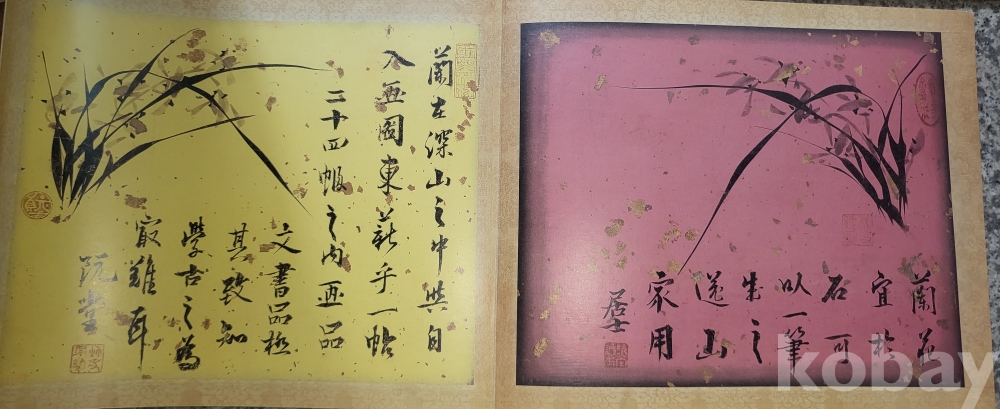 蘭在深山之中與自
入畫圖東菽乎一帖
二十四幅之內画品
文書品極
其致知
學古之為
寂難耳
阮堂
蘭花
宜於
石可
以一筆
成之
送山
家用
居士
kobay